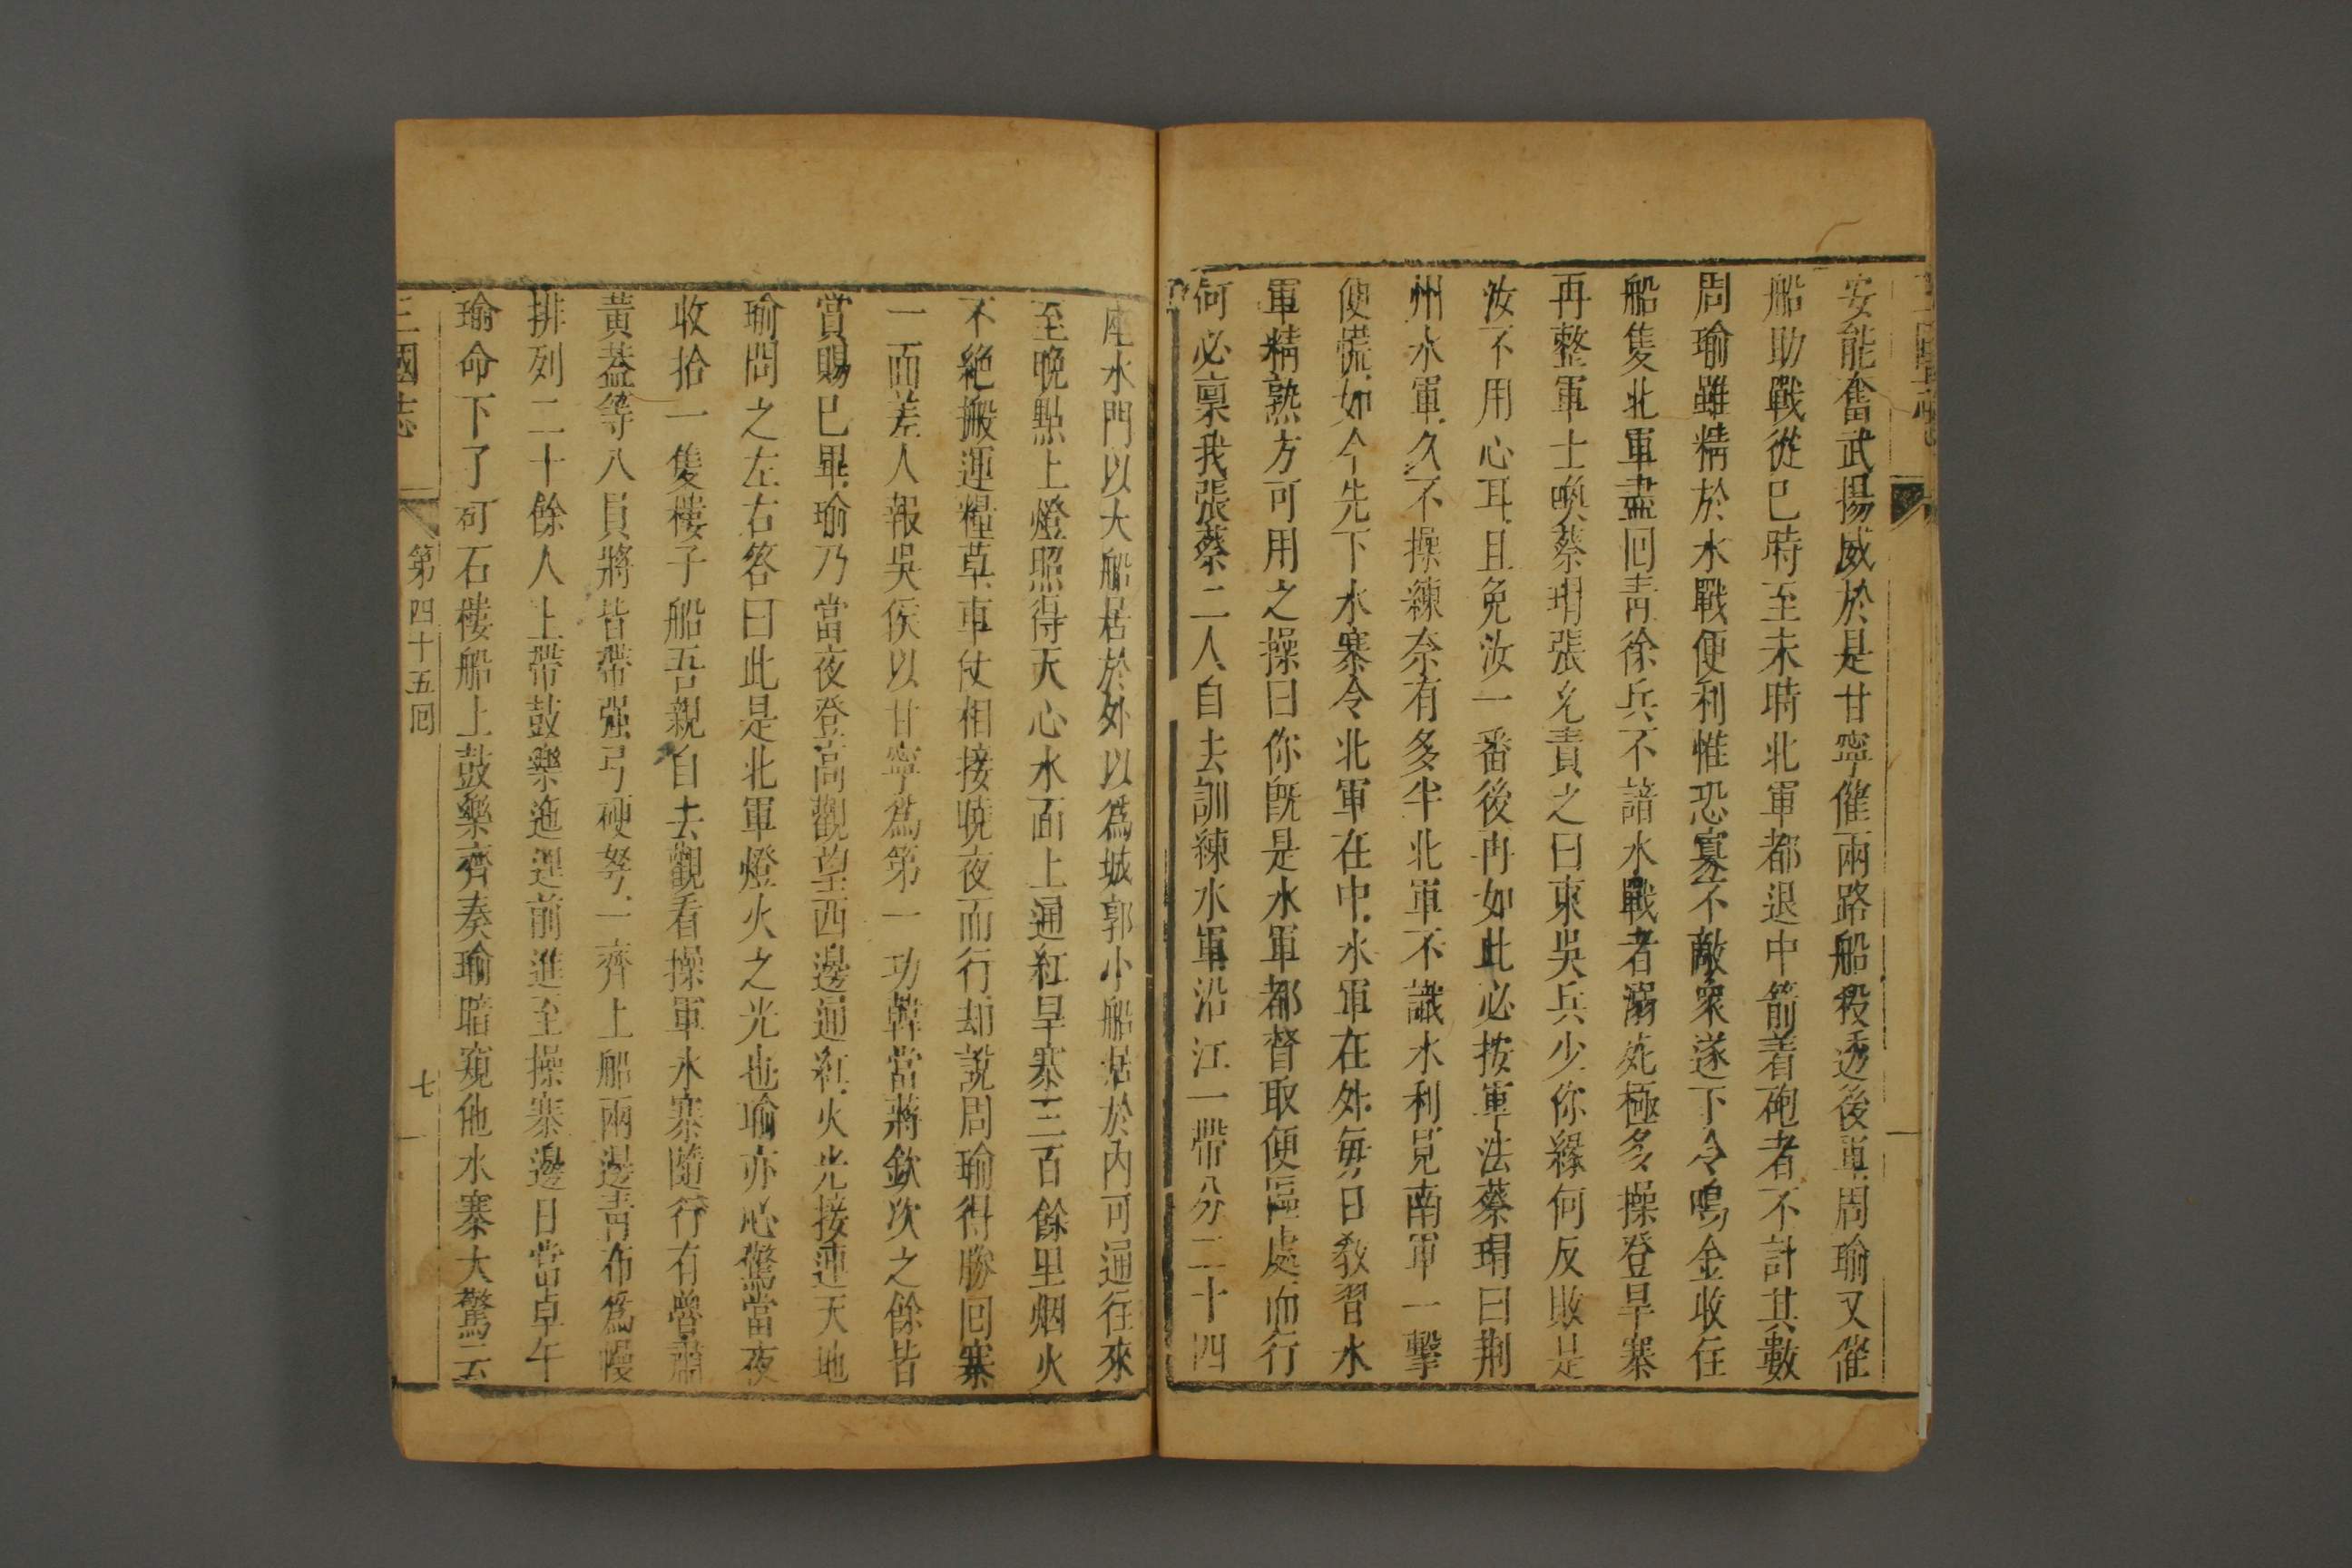 三國志
安能奮武揚威於是甘寧催兩路船殺透後軍周瑜又催
船助戰從巳時至未時北軍都退中箭着砲者不計其數
周瑜雖精於水戰便利惟恐寡不敵衆遂下令鳴金收住
船隻北軍盡回靑徐兵不諳水戰者溺死極多操登旱寨
再整軍士喚蔡瑁張允責之曰東吳兵少你緣何反敗是
汝不用心耳且免汝一番後再如此必按軍法蔡瑁曰荆
州水軍久不操練奈有多半北軍不識水利見南軍一擊
便慌如今先下水寨令北軍在中水軍在外每日敎習水
軍精熟方可用之操曰你旣是水軍都督取便區處而行
何必禀我張蔡二人自去訓練水軍沿江一帶分二十四
座水門以大船居於外以爲城郭小船居於內可通往來
至晚點上燈照得天心水面上通紅旱寨三百餘里烟火
不絶搬運糧草車仗相接曉夜而行却說周瑜得勝回寨
一面差人報吳侯以甘寧爲第一功韓當蔣欽次之餘皆
賞賜已畢瑜乃當夜登高觀望西邊通紅火光接連天地
瑜問之左右答曰此是北軍燈火之光也瑜亦心驚當夜
收拾一隻樓子船吾親自去觀看操軍水寨隨行有魯肅
黃蓋等八員將皆帶强弓硬弩一齊上船兩邊靑布爲幔
排列二十餘人上帶鼓樂迤逞前進至操寨邊日當卓午
瑜命下了矴石樓船上鼓樂齊奏瑜暗窺他水寨大驚云
三國志 第四十五囘 七